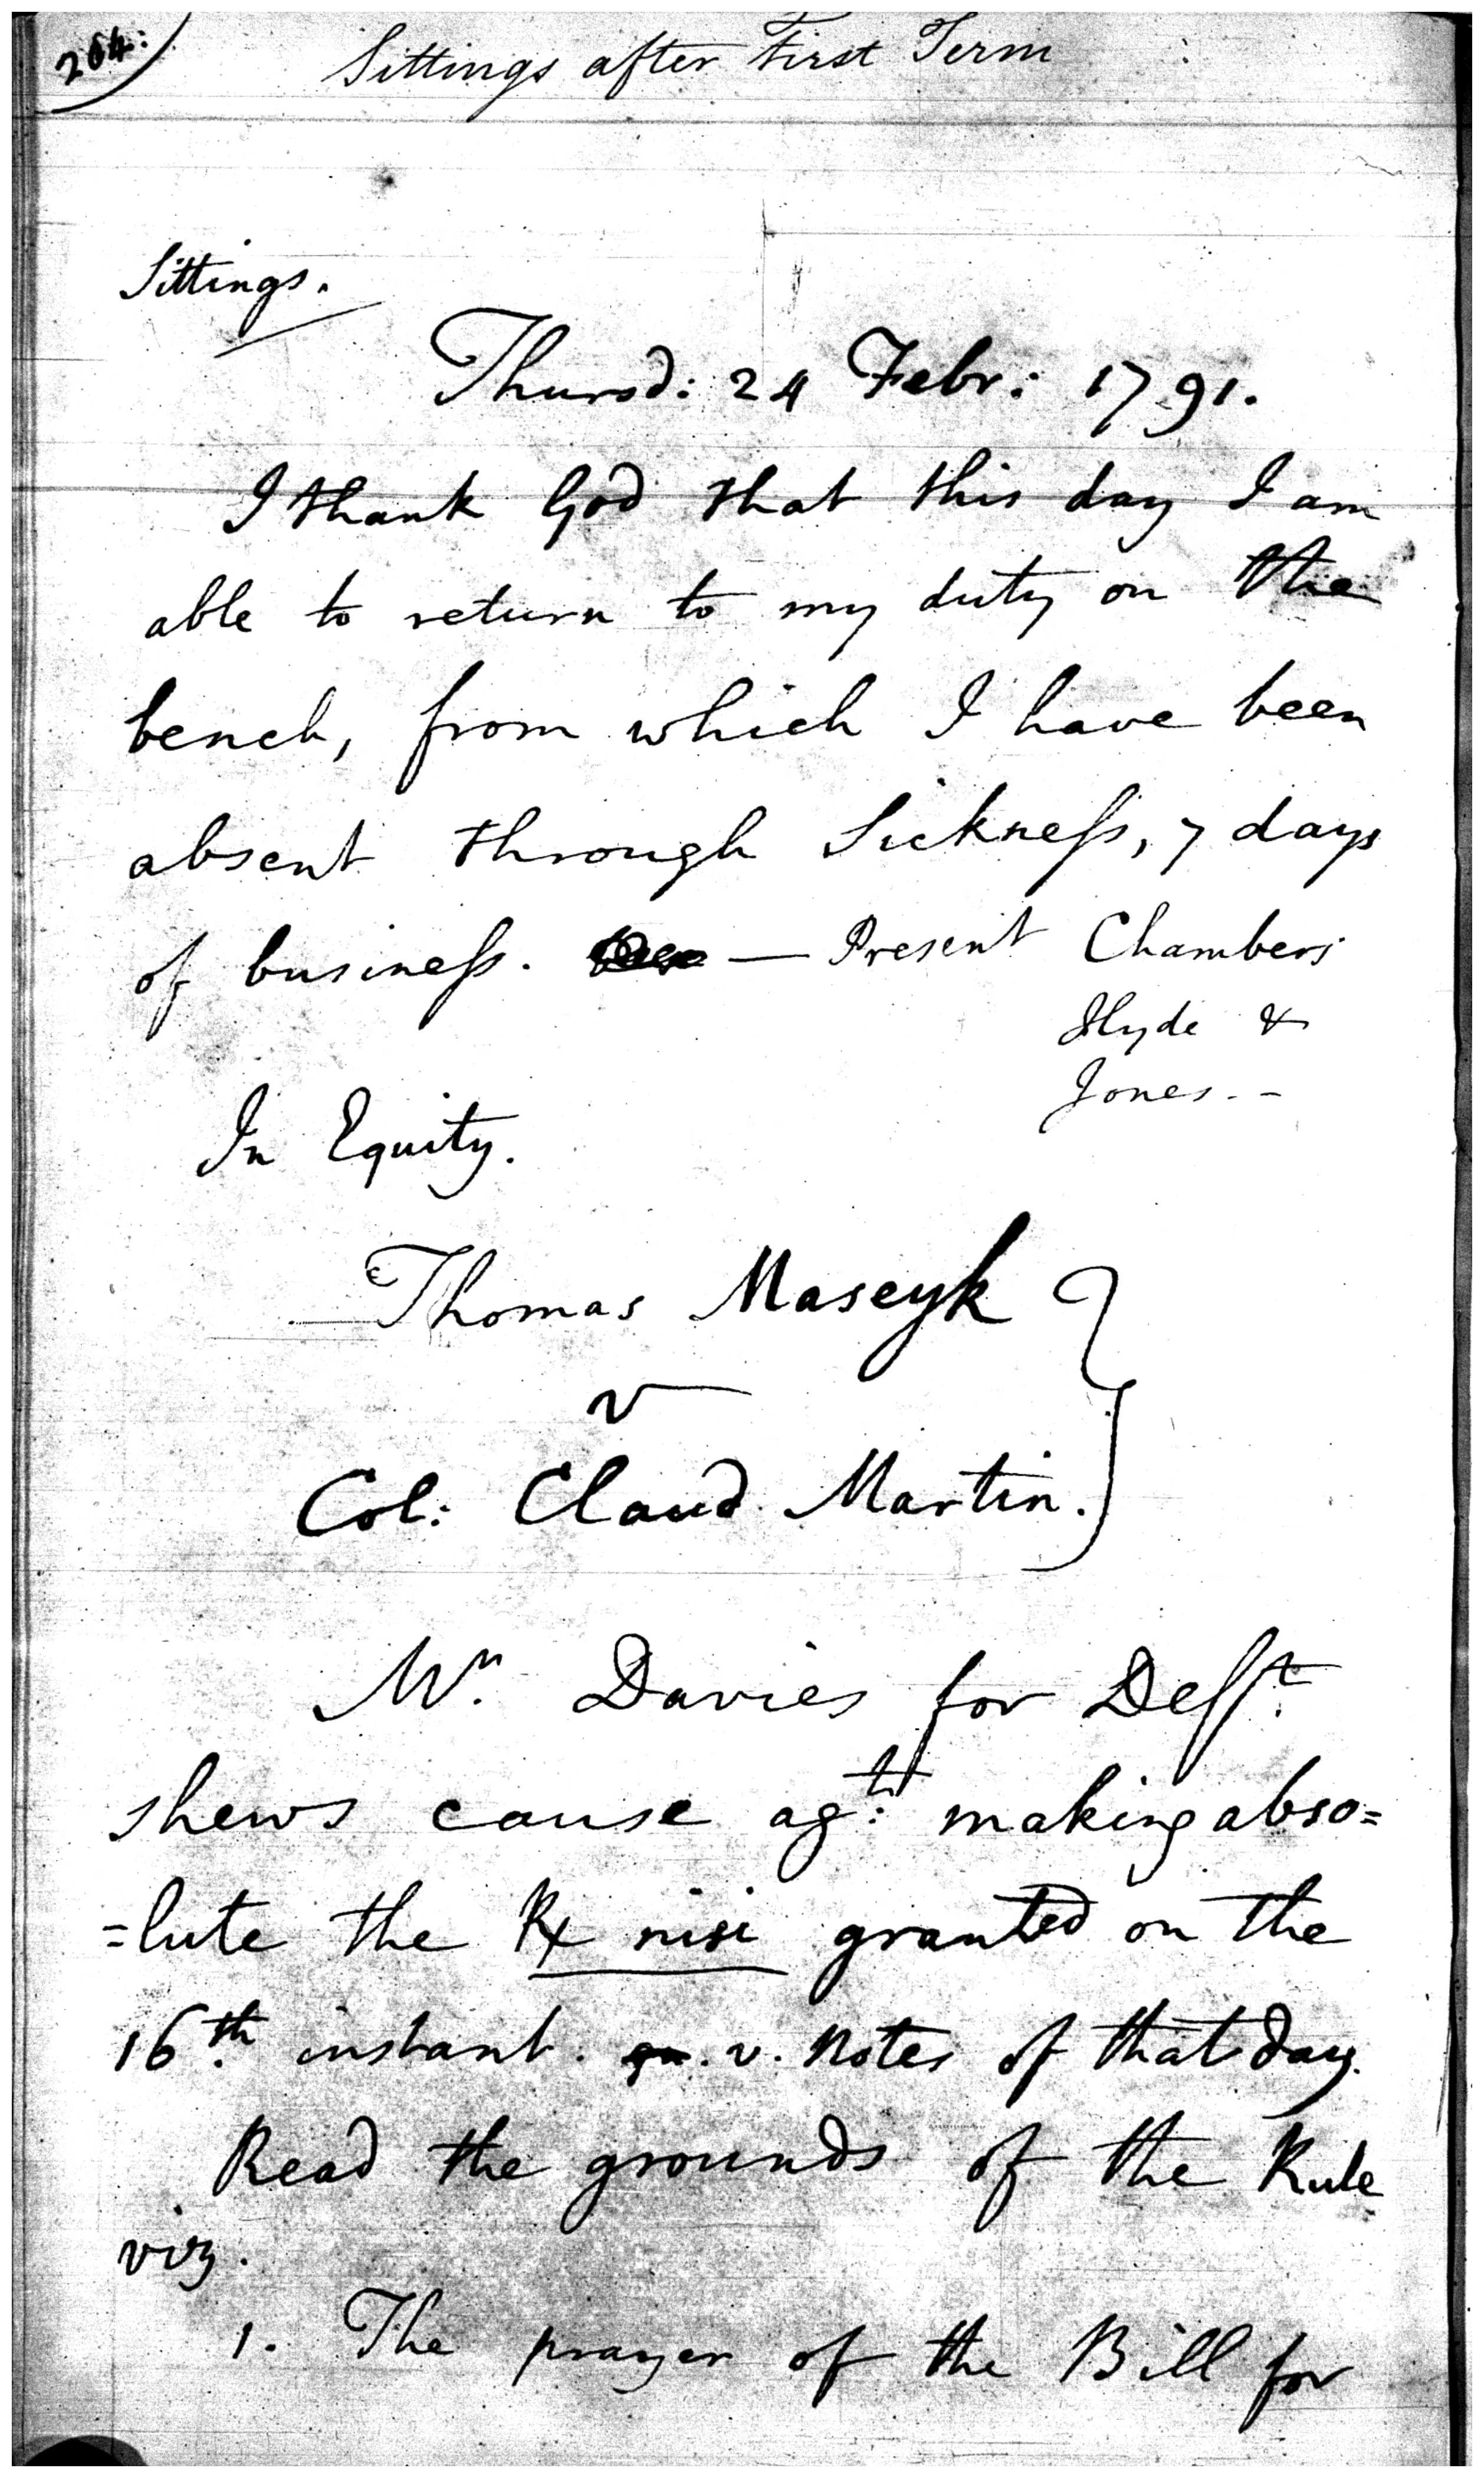 264:
Sittings after First Term
Sittings.
Thursd: 24 Febr: 1791.
I thank God that this day I am
able to return to my duty on the
bench, from which I have been
absent through Sickneſs, 7 days
of buſineſs. — Present Chambers
Hyde &
Jones. -
In Equity.
Thomas Maseyk
v
Col: Claud Martin.
Mr. Davies for Defft.
shews cause agt: making abso=
=lute the Rx nisi granted on the
16th. instant. v. Notes of that day.
Read the grounds of the Rule
viz.
1. The prayer of the Bill for